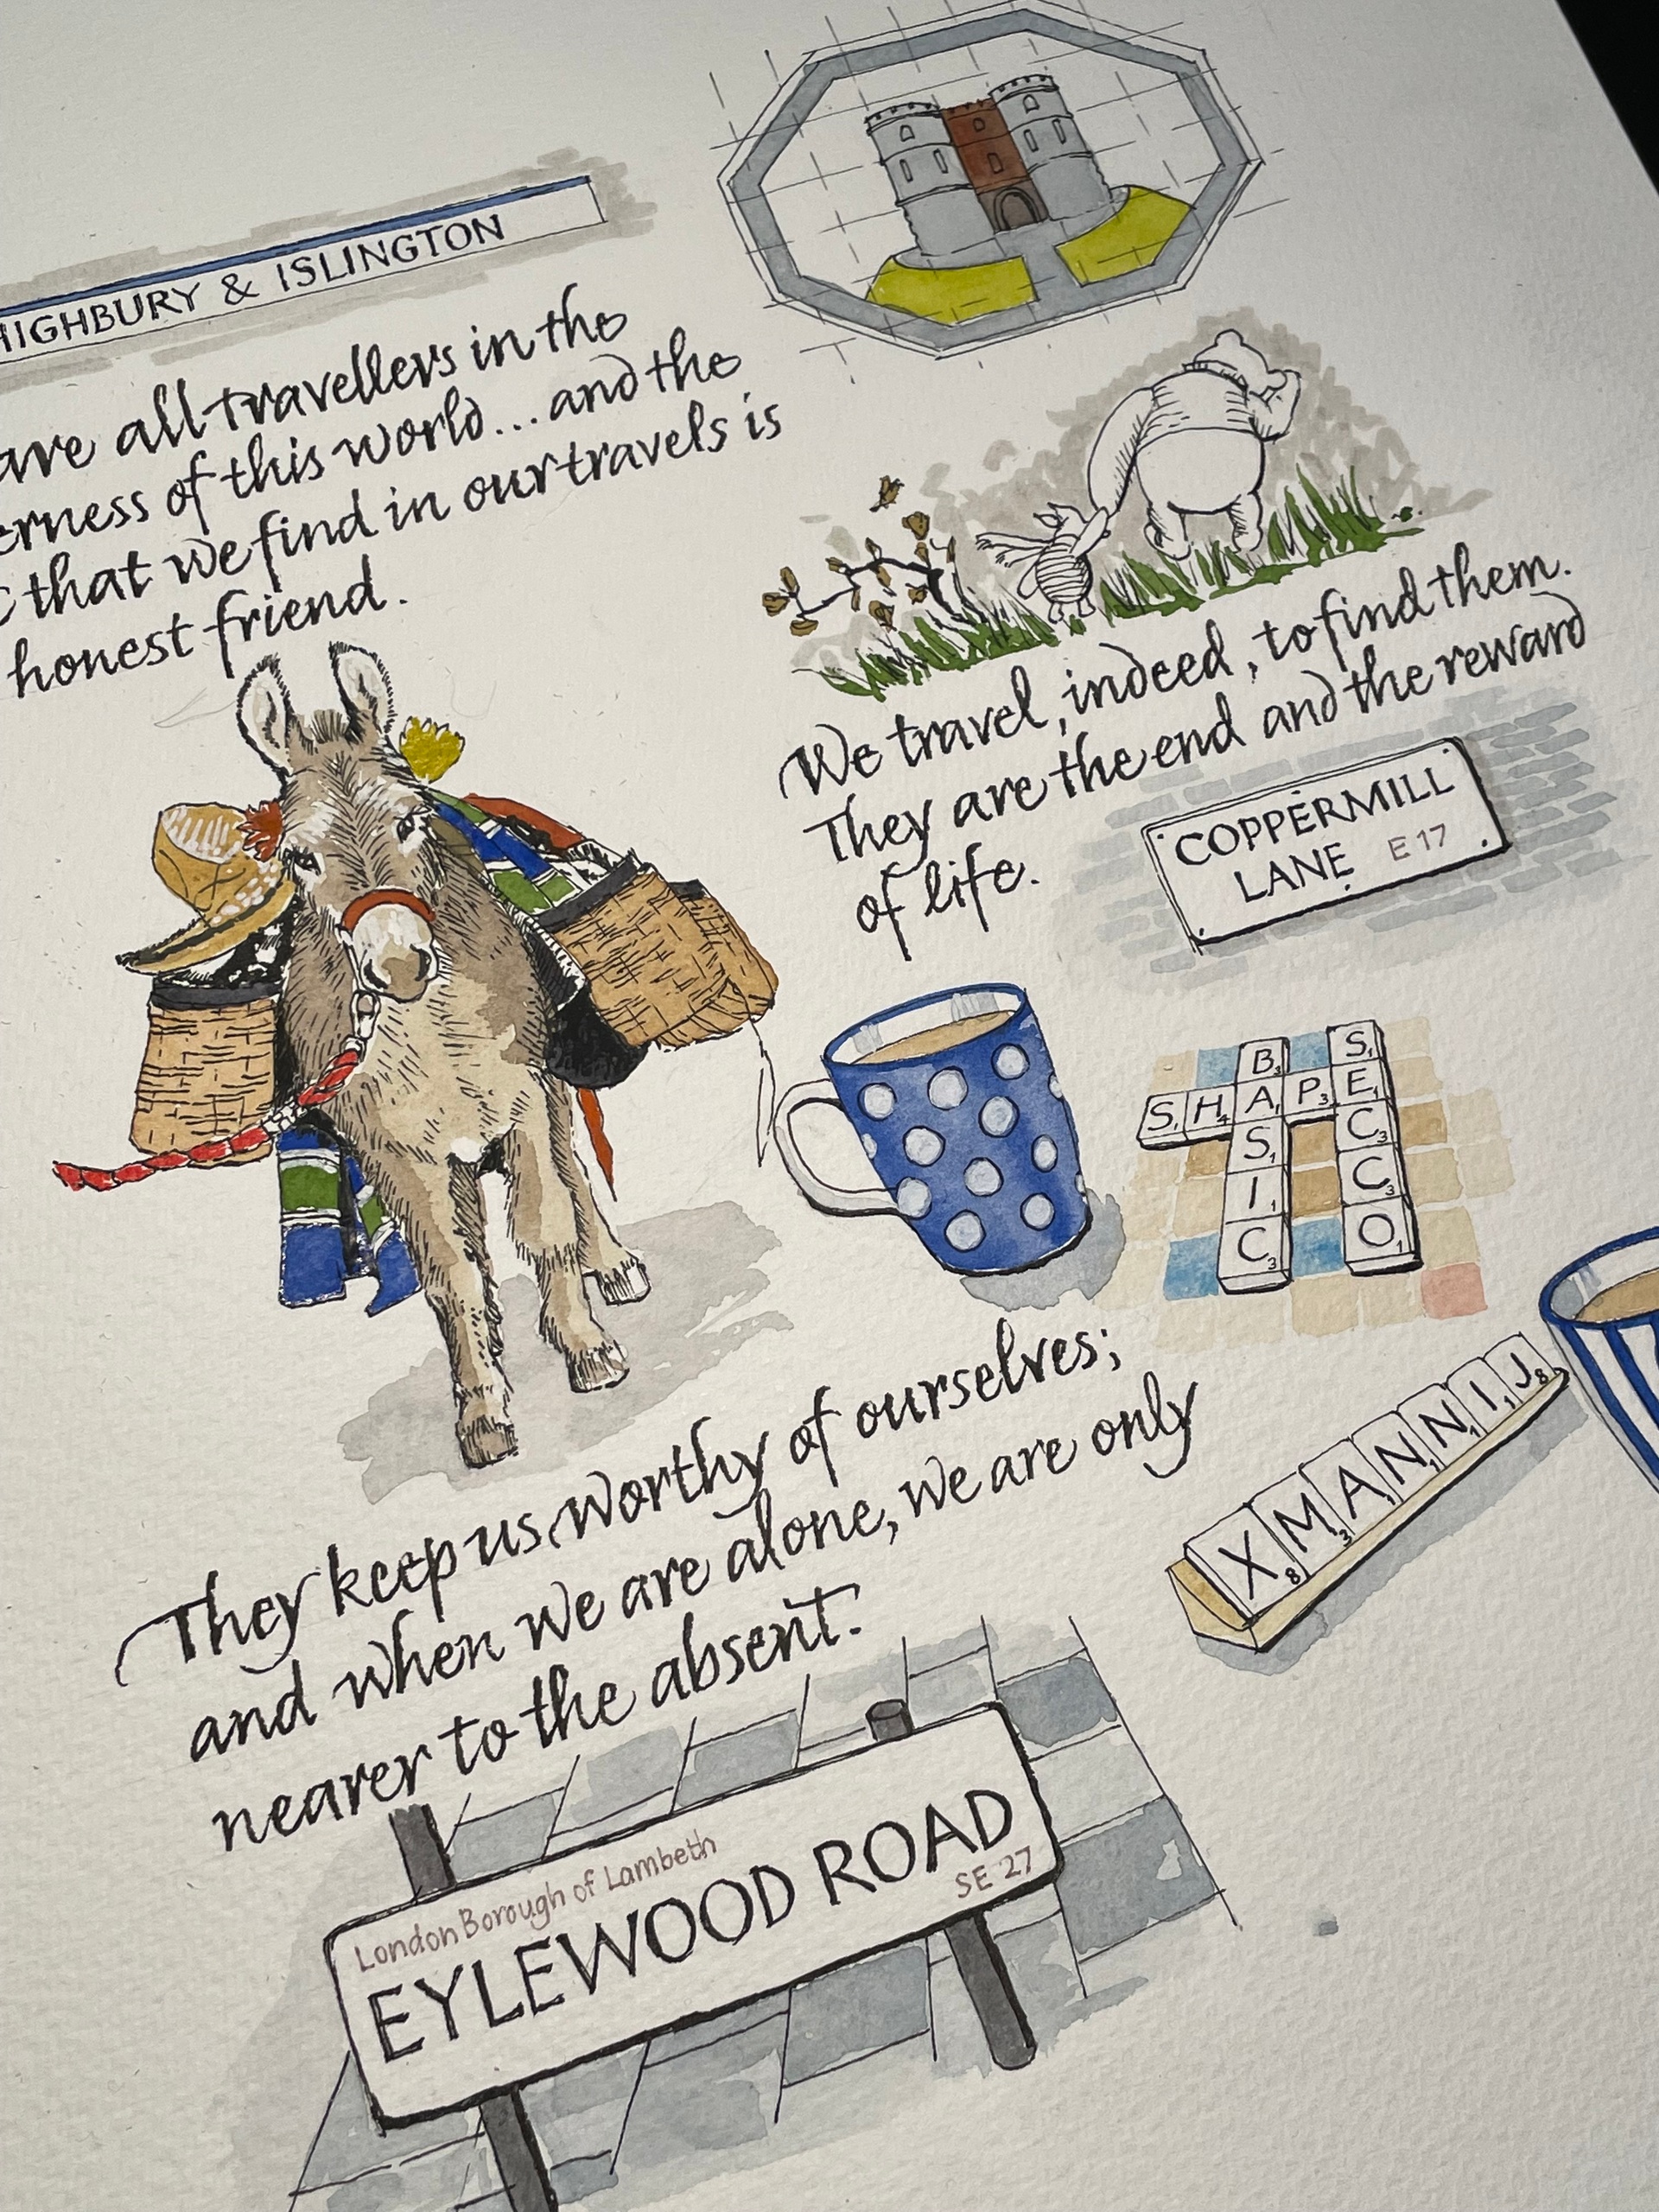 HIGHBURY & ISLINGTON
are all travellers in the
erness of this world...and the
that we find in our travels is
honest friend.
We travel, indeed, to find them.
They are the end and the reward
of life.
COPPERMILL
LANE E17
SHAPE
BASIC
SECCO
XMANNIJ
They keep us worthy of ourselves;
and when we are alone, we are only
nearer to the absent.
London Borough of Lambeth
EYLEWOOD ROAD
SE 27